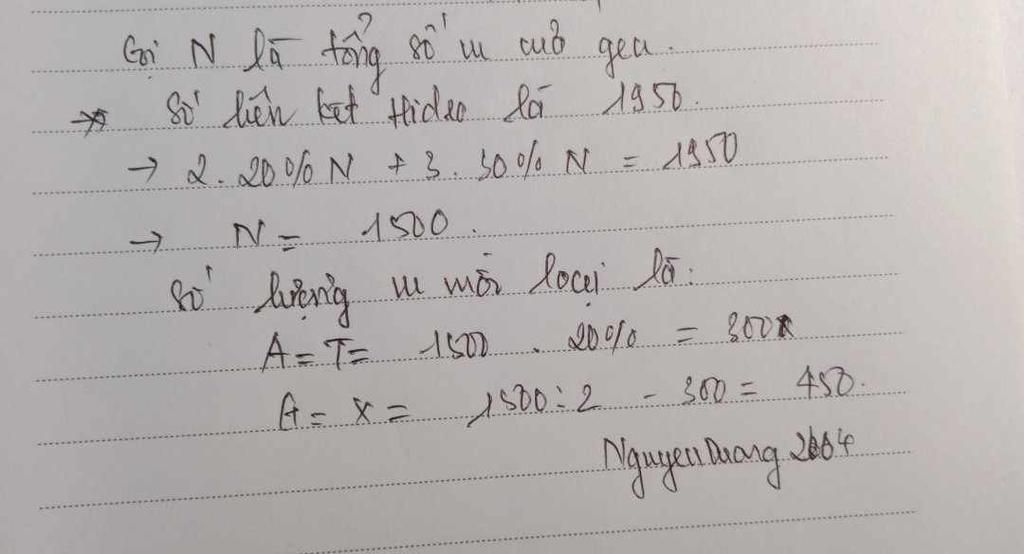 Gọi N là tổng số nu của gen.
* Số liên kết Hidro là 1950.
→ 2. 20% N + 3. 30% N = 1950
→ N = 1500.
Số lượng nu mỗi loại là:
A = T = 1500 . 20% = 300
A = X = 1500 : 2 - 300 = 450.
NguyenQuang 2004